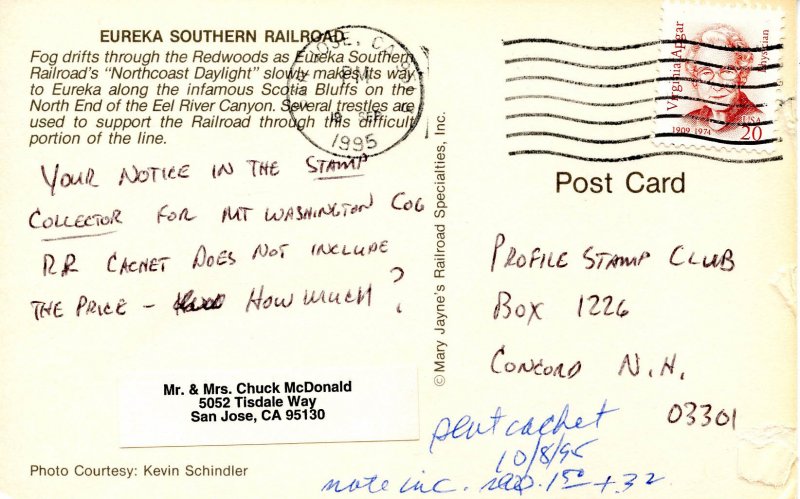 EUREKA SOUTHERN RAILROAD
Fog drifts through the Redwoods as Eureka Southern
Railroad's "Northcoast Daylight" slowly makes its way
to Eureka along the infamous Scotia Bluffs on the
North End of the Eel River Canyon. Several trestles are
used to support the Railroad through this difficult
portion of the line.
SAN JOSE, CA
PM
SEP
1995
YOUR NOTICE IN THE STAMP
COLLECTOR FOR MT WASHINGTON COG
RR CACHET DOES NOT INCLUDE
THE PRICE - HOW MUCH?
Mr. & Mrs. Chuck McDonald
5052 Tisdale Way
San Jose, CA 95130
Photo Courtesy: Kevin Schindler
© Mary Jayne's Railroad Specialties, Inc.
Virginia Apgar
Physician
1909 1974
USA
20
Post Card
PROFILE STAMP CLUB
BOX 1226
CONCORD N.H.
03301
sent cachet
10/8/95
note inc. 1.50 + .32